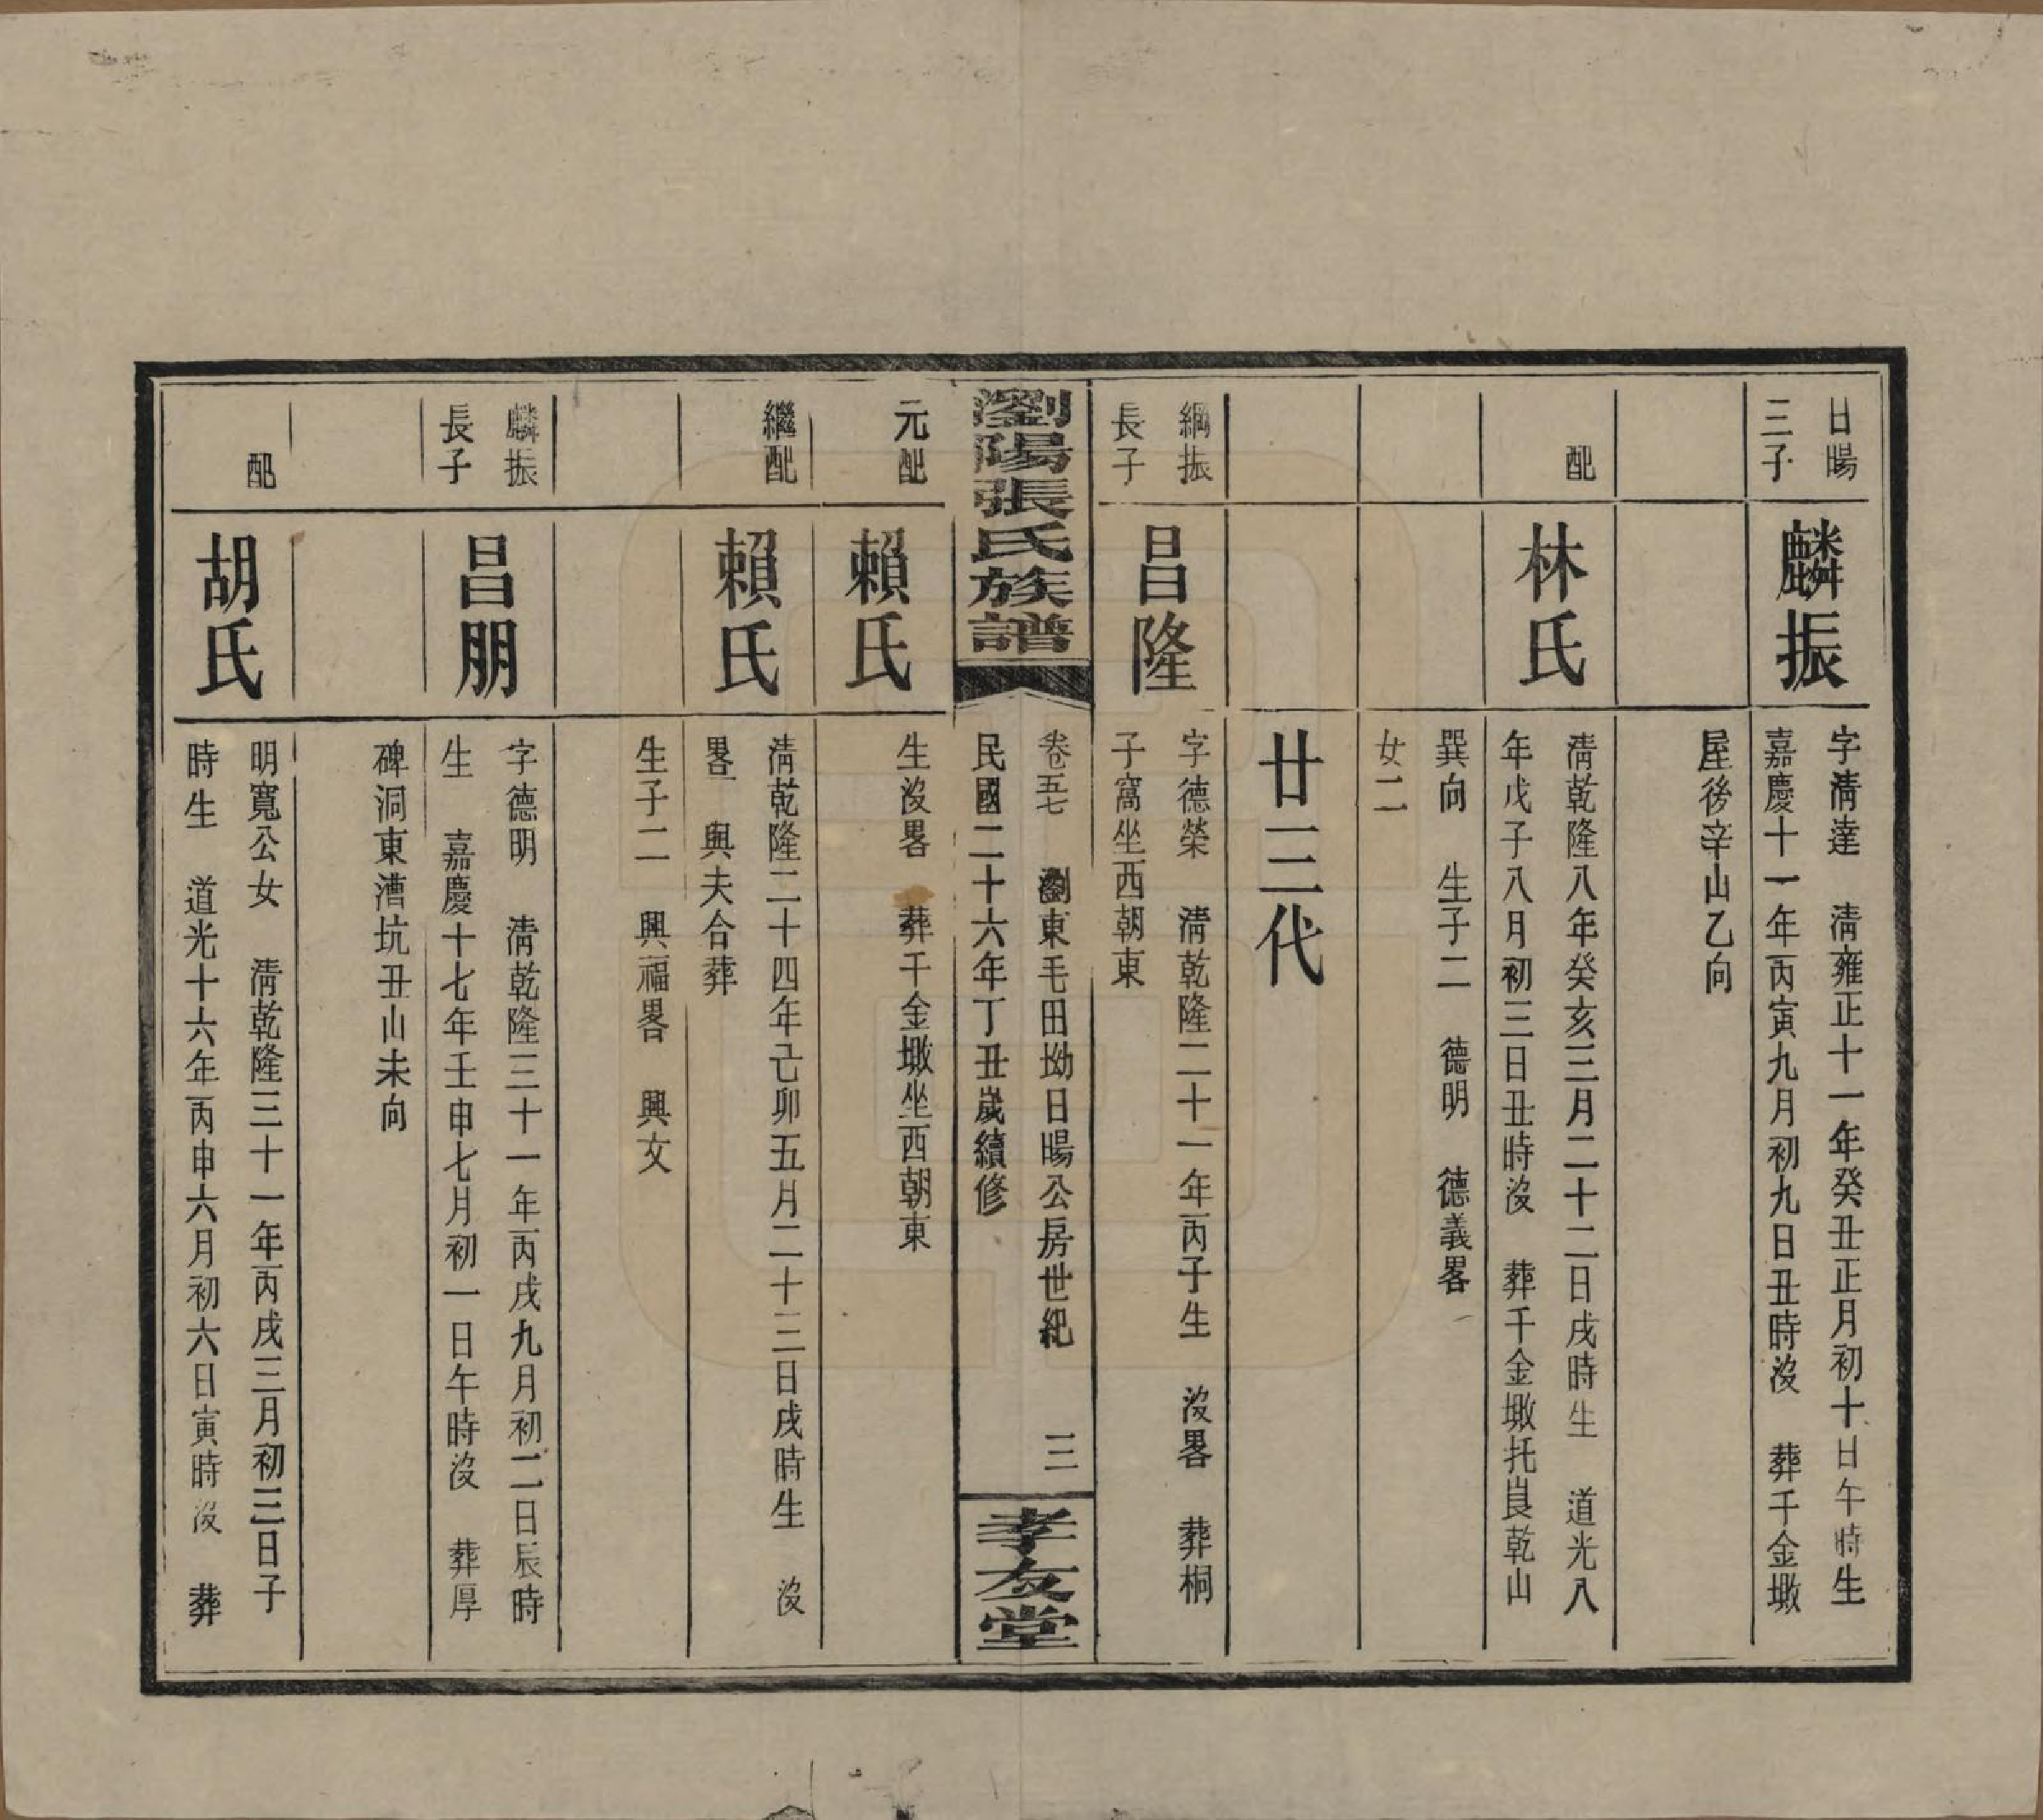 日暘
三子
麟振
字淸達　淸雍正十一年癸丑正月初十日午時生
嘉慶十一年丙寅九月初九日丑時沒　葬千金墩
屋後辛山乙向
配
林氏
淸乾隆八年癸亥三月二十二日戌時生　道光八
年戊子八月初三日丑時沒　葬千金墩托良乾山
巽向　生子二　德明　德義畧
女二
廿三代
綱振
長子
昌隆
字德榮　淸乾隆二十一年丙子生　沒畧　葬桐
子窩坐西朝東
瀏陽張氏族譜
卷五七　瀏東毛田坳日暘公房世紀　三
民國二十六年丁丑歲續修
孝友堂
元配
賴氏
生沒畧　葬千金墩坐西朝東
繼配
賴氏
淸乾隆二十四年己卯五月二十三日戌時生　沒
畧　與夫合葬
生子二　興福畧　興文
麟振
長子
昌朋
字德明　淸乾隆三十一年丙戌九月初二日辰時
生　嘉慶十七年壬申七月初一日午時沒　葬厚
碑洞東漕坑丑山未向
配
胡氏
明寬公女　淸乾隆三十一年丙戌三月初三日子
時生　道光十六年丙申六月初六日寅時沒　葬